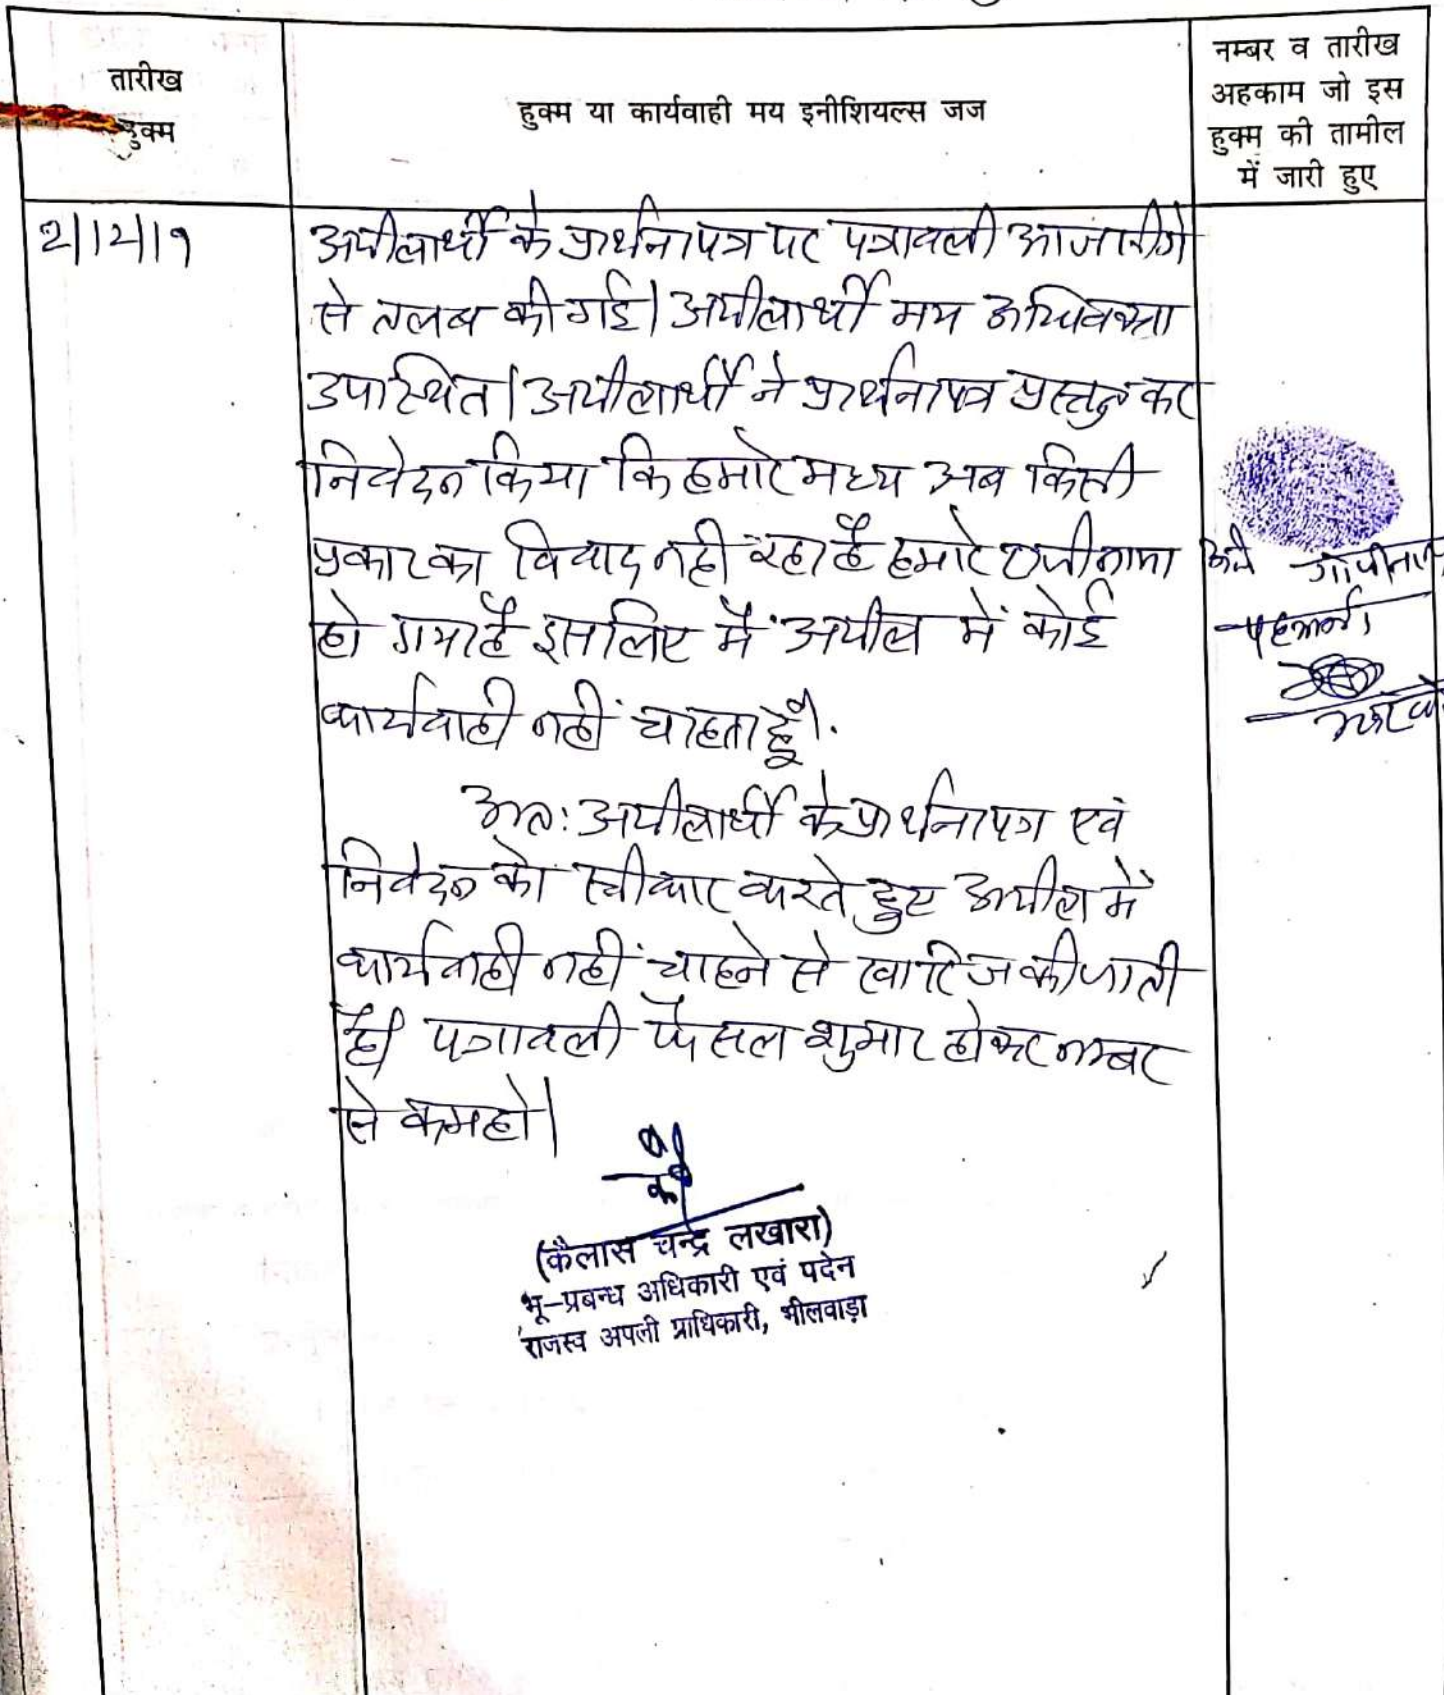 तारीख
हुक्म
हुक्म या कार्यवाही मय इनीशियल्स जज
नम्बर व तारीख
अहकाम जो इस
हुक्म की तामील
में जारी हुए
2/12/19
अपीलार्थी के प्रार्थनापत्र पर पत्रावली
से तलब की गई। अपीलार्थी मय अधिवक्ता
उपस्थित। अपीलार्थी ने प्रार्थनापत्र प्रस्तुत कर
निवेदन किया कि हमारे मध्य अब किसी
प्रकार का विवाद नही रहा है हमारे राजीनामा
हो गया है इसलिए मैं अपील में कोई
कार्यवाही नहीं चाहता हूँ।
अतः अपीलार्थी के प्रार्थनापत्र एवं
निवेदन को स्वीकार करते हुए अपील में
कार्यवाही नहीं चाहने से खारिज की जाती
है। पत्रावली फैसल शुमार होकर नम्बर
से कम हो।
(कैलास चन्द्र लखारा)
भू-प्रबन्ध अधिकारी एवं पदेन
राजस्व अपली प्राधिकारी, भीलवाड़ा